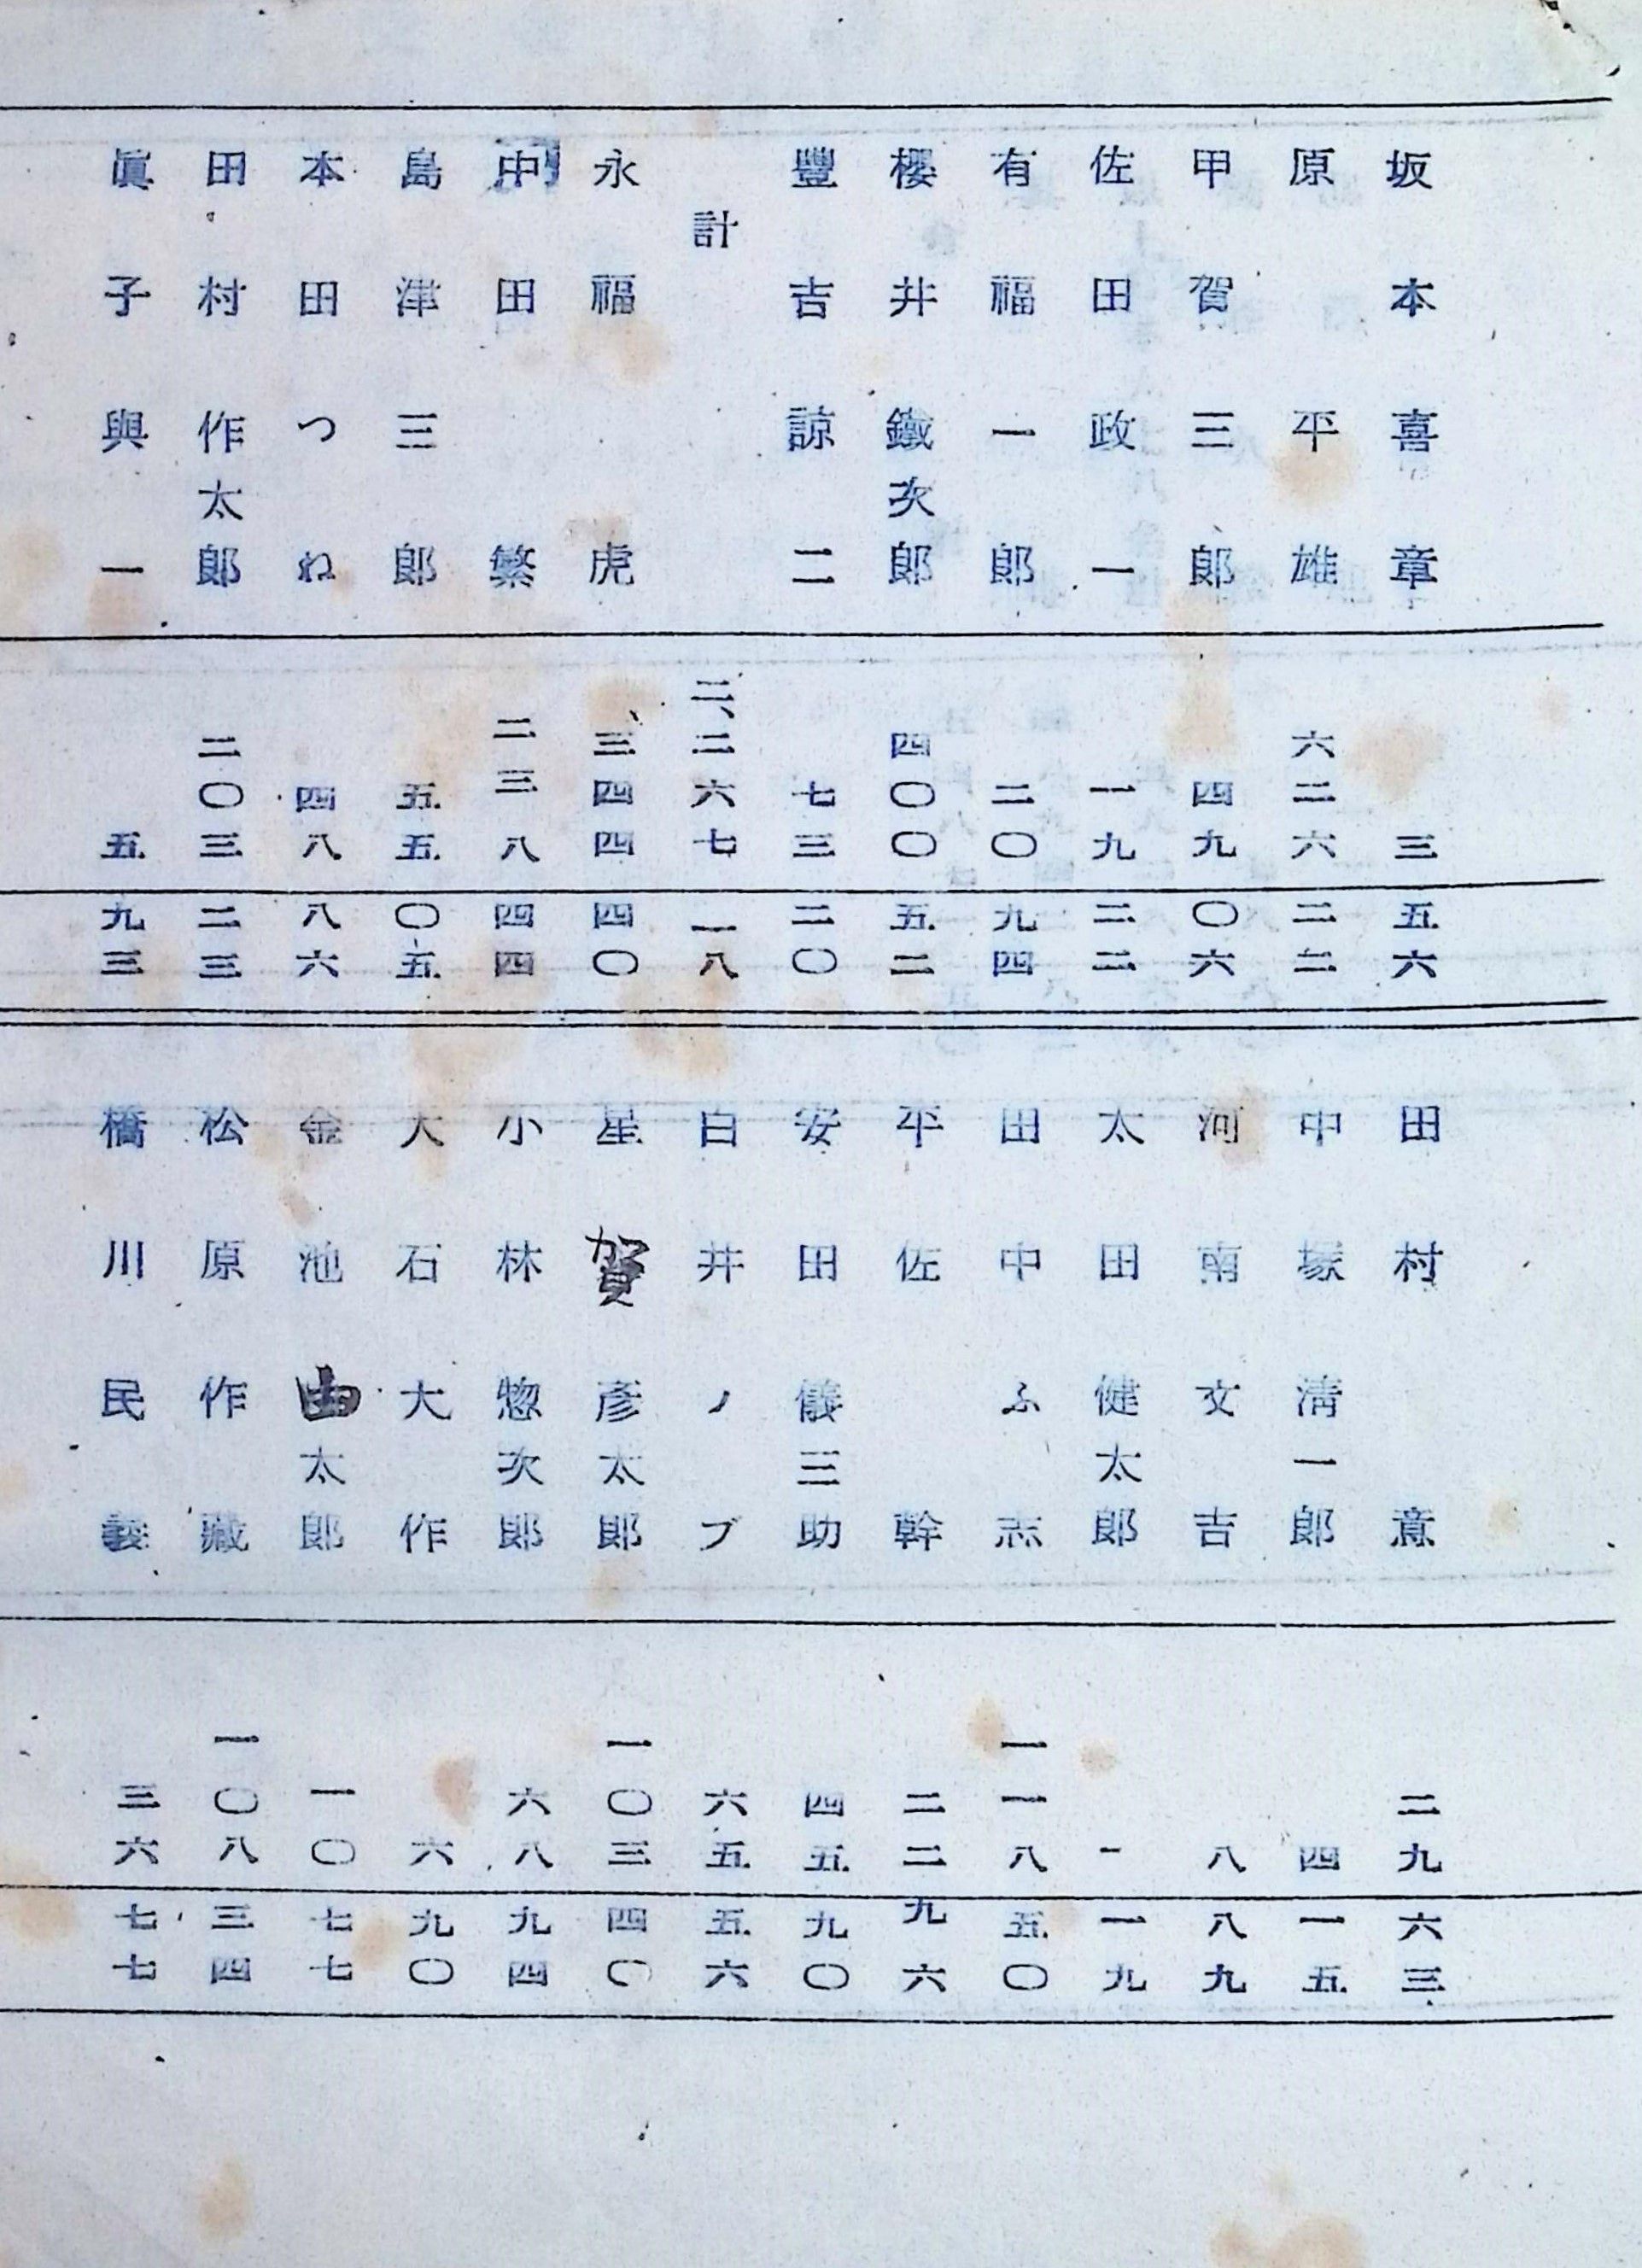 坂本喜章 三五六
原平雄 六二六二二
甲賀三郎 四九〇六
佐田政一 一九二二
有福一郎 二〇九四
櫻井鐵次郎 四〇〇五二
豐吉諒二 七三二〇
計 二、二六七一八
永福虎 三、四四四〇
中田繁 二三八四四
島津三郎 五五〇五
本田つね 四八八六
田村作太郎 二〇三二三
眞子與一 五九三
田村意 二九六三
中塚淸一郎 四一五
河南文吉 八八九
太田健太郎 一一九
田中ふ志 一一八五〇
平佐幹 二二九六
安田儀三助 四五九〇
白井ノブ 六五五六
星賀彥太郎 一〇三四〇
小林惣次郎 六八九四
大石大作 六九〇
金池由太郎 一〇七七
松原作藏 一〇八三四
橋川民義 三六七七